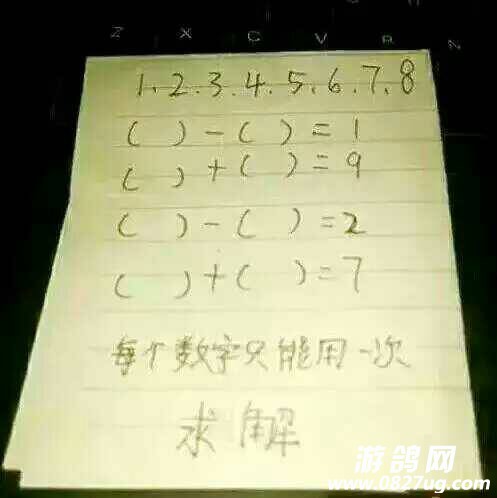 Z X C V B N
1.2.3.4.5.6.7.8
( ) - ( ) = 1
( ) + ( ) = 9
( ) - ( ) = 2
( ) + ( ) = 7
每个数字只能用一次
求解
游鸽网
www.0827ug.com